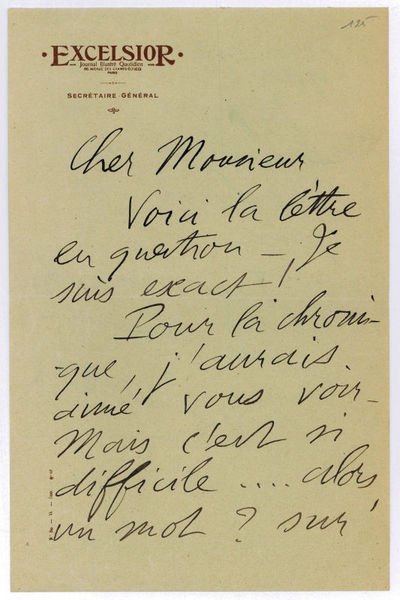 125
EXCELSIOR
Journal Illustré Quotidien
88, AVENUE DES CHAMPS-ÉLYSÉES
PARIS
SECRÉTAIRE GÉNÉRAL
Cher Monsieur
Voici la lettre
en question — Je
suis exact !
Pour la chroni-
-que, j'aurais
aimé vous voir-
Mais c'est si
difficile .... alors
un mot ? sur